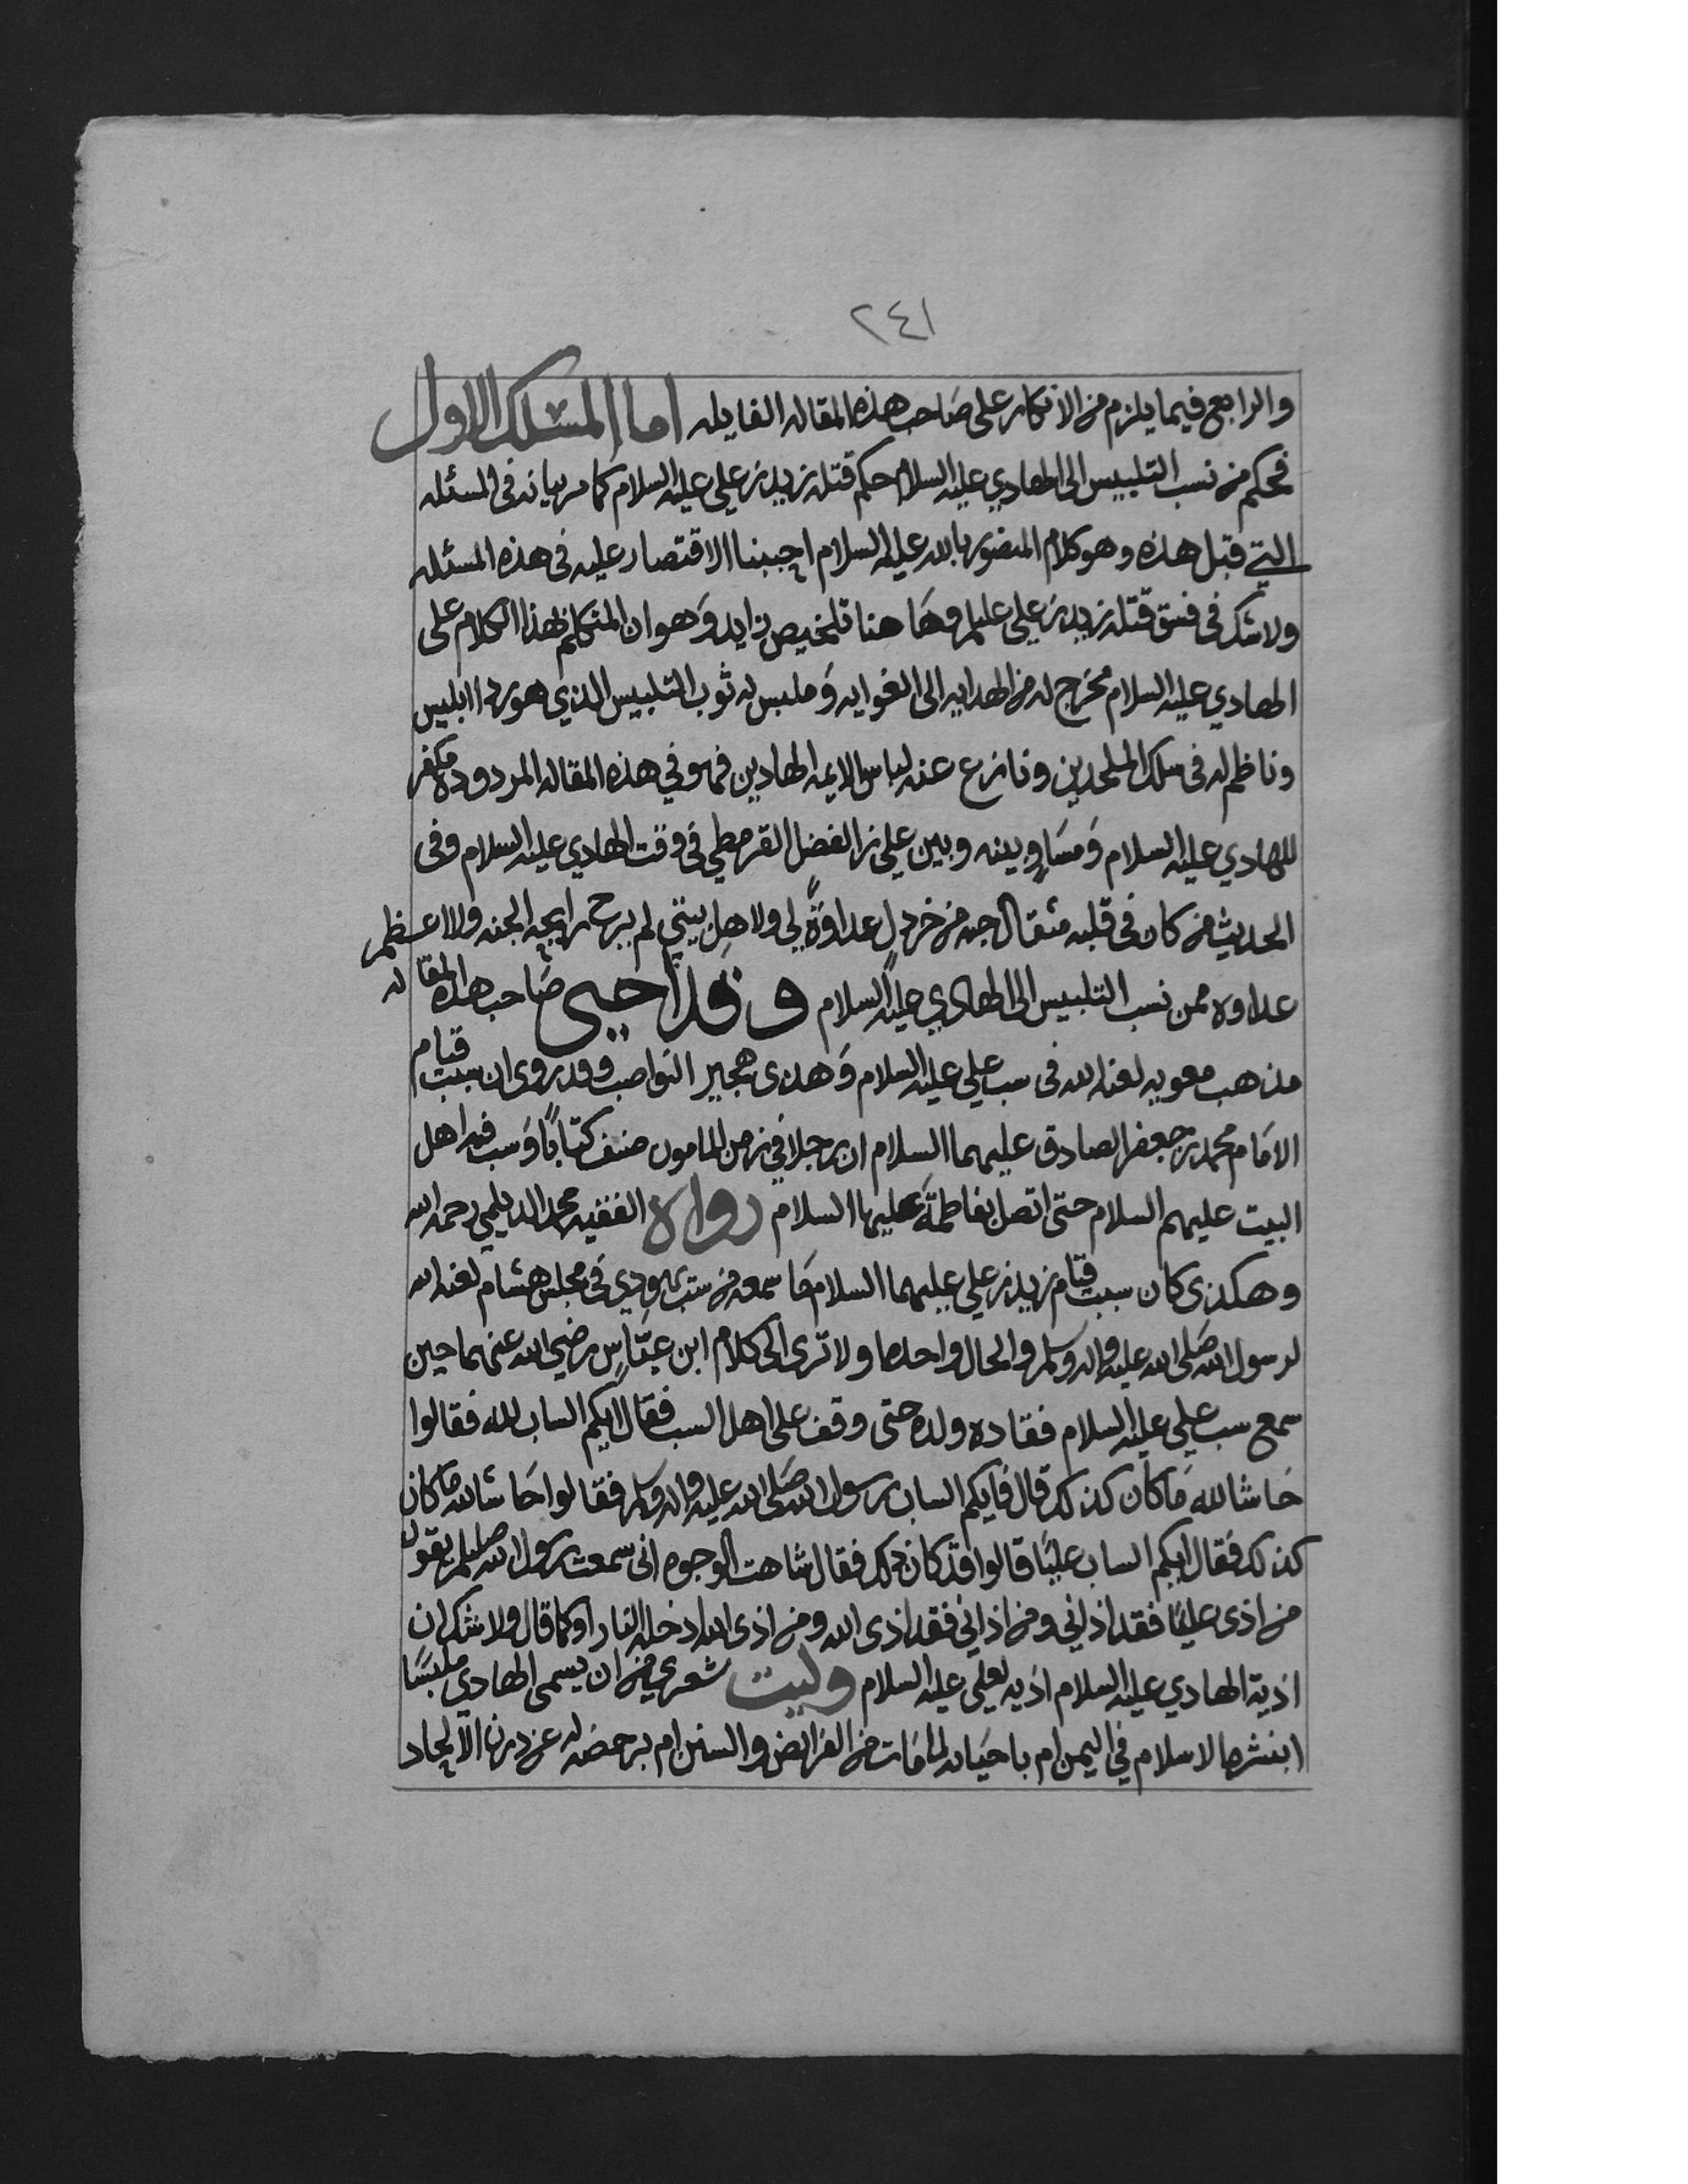 ٢٤١
والرابع فيما يلزم من الانكار على صاحب هذه المقاله الفايله اما المسلك الاول
فحكم من نسب التلبيس الى الهادي عليه السلام حكم قتله زيد بن علي عليه السلام كما مر بيانه فى المسئله
التي قبل هذه وهو كلام المنصور بالله عليه السلام احببنا الاقتصار عليه فى هذه المسئله
ولا شك فى فسق قتله زيد بن علي علىلم وهاهنا تلخيص زايد وهو ان المتكلم بهذا الكلام على
الهادي عليه السلام مخرج له من الهدايه الى الغوايه وملبس له ثوب التلبيس الذي هو ردا ابليس
وناظم له فى سلك الملحدين ونازع عنه لباس الايمه الهادين فهو في هذه المقاله المردوده مكفر
للهادي عليه السلام ومساوٍ بينه وبين علي بن الفضل القرمطي فى وقت الهادي عليه السلام وفى
الحديث من كان فى قلبه مثقال حبه من خردل عداوةً لي ولاهل بيتي لم يرح رايحه الجنه ولا اعظم
عداوه ممن نسب التلبيس الى الهادي عليه السلام وقد احيى صاحب هذه المقاله
مذهب معويه لعنه الله فى سب علي عليه السلام وهذى هجير النواصب وقد روى ان سبب قيام
الامام محمد بن جعفر الصادق عليهما السلام ان رجلا في زمن المامون صنف كتابًا وسب فيه اهل
البيت عليهم السلام حتى اتصل بفاطمة عليها السلام رواه الفقيه محمد الديلمي رحمه الله
وهكذى كان سبب قيام زيد بن علي عليهما السلام ما سمعه من سب يهودي فى مجلس هشام لعنه الله
لرسول الله صلى الله عليه واله وسلم والحال واحده ولا ترى الى كلام ابن عباس رضي الله عنهما حين
سمع سب علي عليه السلام فقاده ولده حتى وقف على اهل السب فقال ايكم الساب لله فقالوا
حاشا لله ما كان كذلك قال فايكم الساب رسول الله صلى الله عليه واله وسلم فقالوا حاشا لله ما كان
كذلك فقال ايكم الساب عليًا قالوا قد كان ذلك فقال شاهت الوجوه انى سمعت رسول الله صلىلم يقول
من اذى عليًا فقد اذاني ومن اذاني فقد اذى الله ومن اذى الله ادخله النار او كما قال ولا شك ان
اذية الهادي عليه السلام اذيه لعلي عليه السلام وليت شعري من ان يسمى الهادي ملبسًا
ابنشره الاسلام في اليمن ام باحيايه لما مات من الفرايض والسنن ام برحضه له عن درن الالحاد